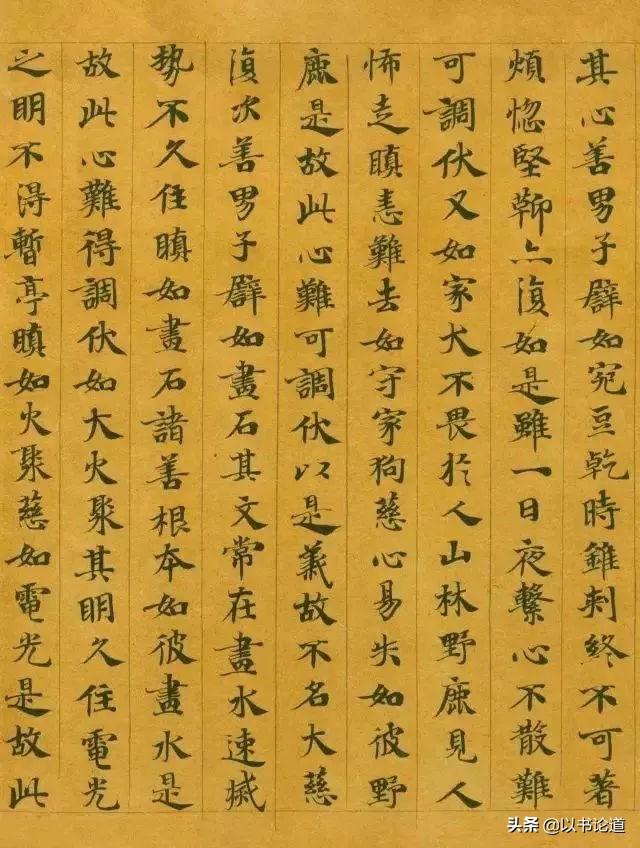 其心善男子譬如宛豆乾時錐刺終不可著
煩惱堅鞕亦復如是雖一日夜繫心不散難
可調伏又如家犬不畏於人山林野鹿見人
怖走瞋恚難去如守家狗慈心易失如彼野
鹿是故此心難可調伏以是義故不名大慈
復次善男子譬如畫石其文常在畫水速滅
勢不久住瞋如畫石諸善根本如彼畫水是
故此心難得調伏如大火聚其明久住電光
之明不得暫亭瞋如火聚慈如電光是故此
头条 @以书论道